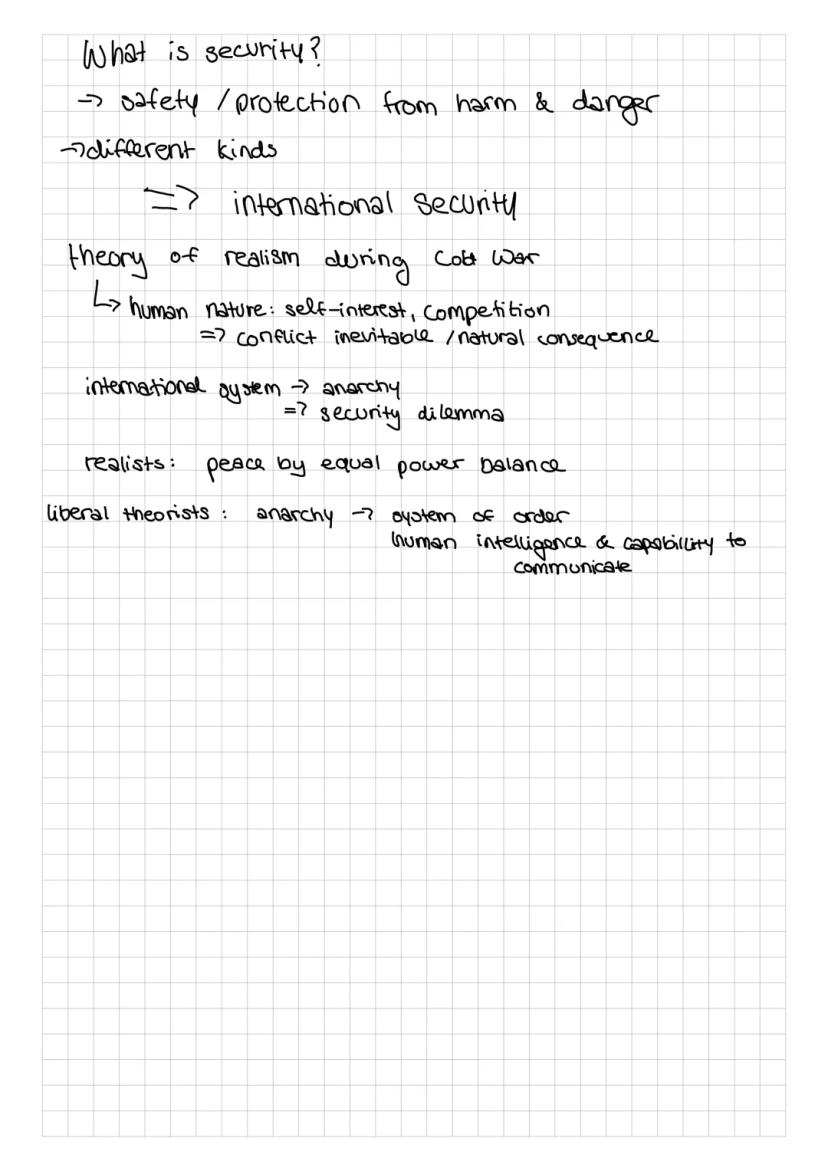 What is security?
-> safety / protection from harm & danger
-> different kinds
=> international security
theory of realism during Cold War
↳ human nature: self-interest, competition
=> conflict inevitable / natural consequence
international system -> anarchy
=> security dilemma
realists: peace by equal power balance
liberal theorists: anarchy -> system of order
human intelligence & capabillity to
communicate